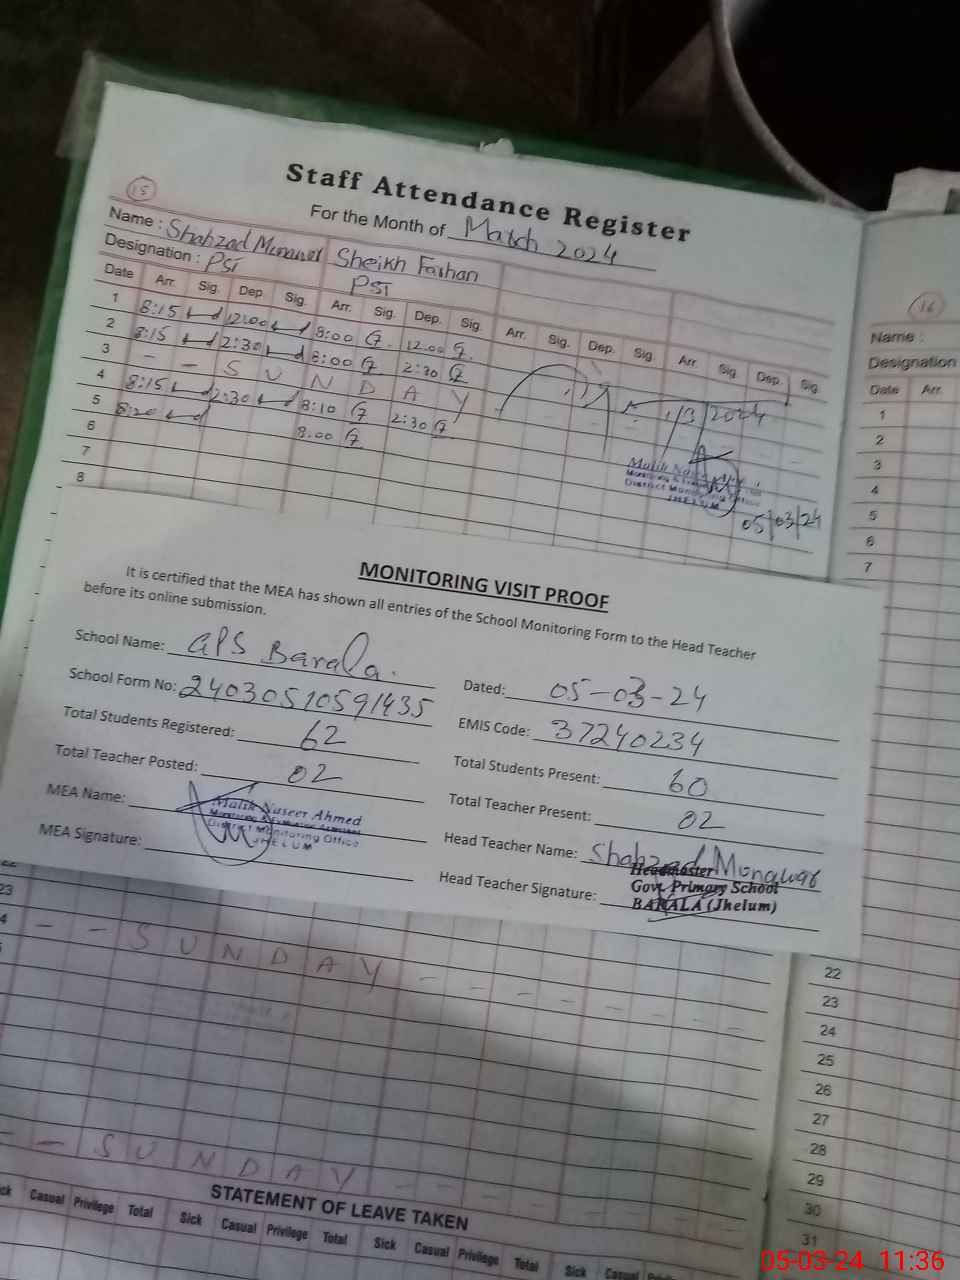 Staff Attendance Register
For the Month of March 2024
15
Name : Shahzad Munawar Sheikh Farhan
Designation : PST PST
Date Arr. Sig. Dep. Sig. Arr. Sig. Dep. Sig. Arr. Sig. Dep. Sig. Arr. Sig. Dep. Sig.
1 8:15 12:00 8:00 12.00
2 8:15 2:30 8:00 2:30
3 - - S U N D A Y
4 8:15 2:30 8:10 2:30
5 8:20 8.00
6
7
8
1/3/2024
District Monitoring Office
JHELUM
05/03/24
16
Name :
Designation
Date Arr.
1
2
3
4
5
6
7
MONITORING VISIT PROOF
It is certified that the MEA has shown all entries of the School Monitoring Form to the Head Teacher
before its online submission.
School Name: GPS Barala.
Dated: 05-03-24
School Form No: 24030510591435
EMIS Code: 37240234
Total Students Registered: 62
Total Students Present: 60
Total Teacher Posted: 02
Total Teacher Present: 02
MEA Name: Malik Naseer Ahmed
Monitoring & Evaluation Assistant
District Monitoring Office
JHELUM
MEA Signature:
Head Teacher Name: Shahzad Monawar
Head Teacher Signature:
Headmaster
Govt. Primary School
BARALA (Jhelum)
23
- - S U N D A Y - - - - - - - -
22
23
24
25
26
27
28
29
30
31
- - S U N D A Y
STATEMENT OF LEAVE TAKEN
Casual Privilege Total Sick Casual Privilege Total Sick Casual Privilege Total Sick Casual
05-03-24 11:36